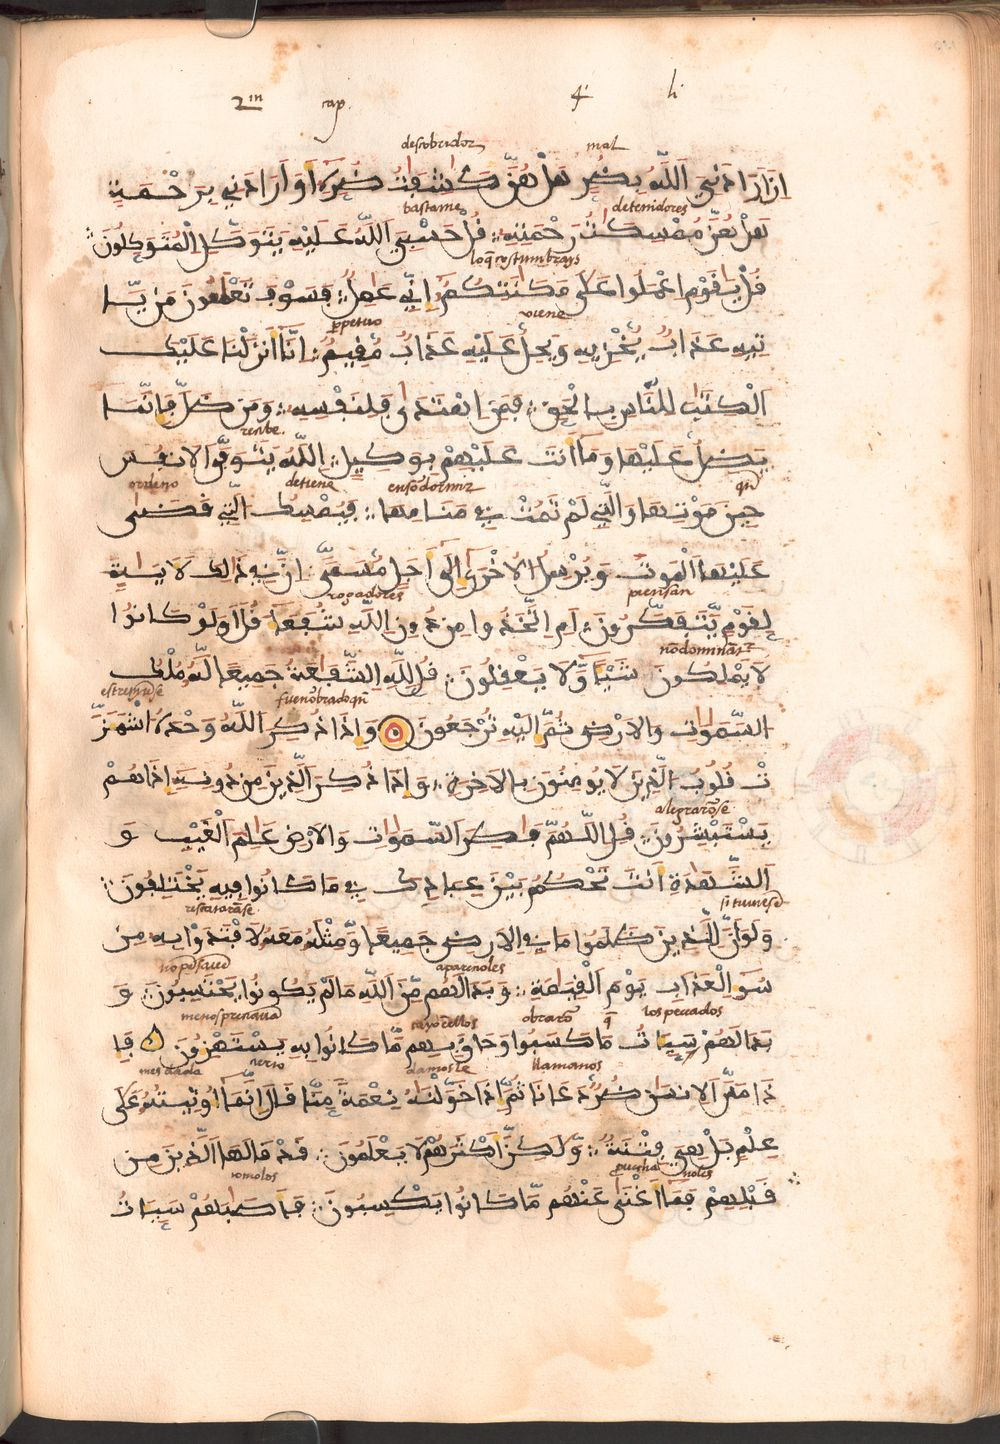 2m cap. 4 li
descobridor mal
ان ارادني الله بضر هل هن كاشفات ضره او ارادني برحمة
bastame detenidores
هل هن ممسكات رحمته قل حسبي الله عليه يتوكل المتوكلون
lo q costumbrays
قل يا قوم اعملوا على مكانتكم اني عامل فسوف تعلمون من يا
ppetuo viene
تيه عذاب يخزيه ويحل عليه عذاب مقيم انا انزلنا عليك
الكتاب للناس بالحق فمن اهتدى فلنفسه ومن ضل فانما
recibe
يضل عليها وما انت عليهم بوكيل الله يتوفى الانفس
ordeno detiene en so dormir qn
حين موتها والتي لم تمت في منامها فيمسك التي قضى
عليها الموت ويرسل الاخرى الى اجل مسمى ان في ذلك لايات
rogadores piensan
لقوم يتفكرون ام اتخذوا من دون الله شفعاء قل اولو كانوا
no dominan
لا يملكون شيئا ولا يعقلون قل لله الشفاعة جميعا له ملك
estremiose fue nobrado qn
السموات والارض ثم اليه ترجعون واذا ذكر الله وحده اشمأز
ت قلوب الذين لا يومنون بالاخرة واذا ذكر الذين من دونه اذا هم
alegraronse
يستبشرون قل اللهم فاطر السموات والارض عالم الغيب و
الشهادة انت تحكم بين عبادك في ما كانوا فيه يختلفون
rescataranse si tuviesen
ولو ان للذين ظلموا ما في الارض جميعا ومثله معه لافتدوا به من
aparecioles
سوء العذاب يوم القيامة وبدا لهم من الله ما لم يكونوا يحتسبون و
menospreciavan cayo en ellos obraron q los peccados
بدا لهم سيئات ما كسبوا وحاق بهم ما كانوا به يستهزءون فا
damosle llamanos
ذا مس الانسان ضر دعانا ثم اذا خولناه نعمة منا قال انما اوتيته على
علم بل هي فتنة ولكن اكثرهم لا يعلمون قد قالها الذين من
قبلهم فما اغنى عنهم ما كانوا يكسبون فاصابهم سيئات